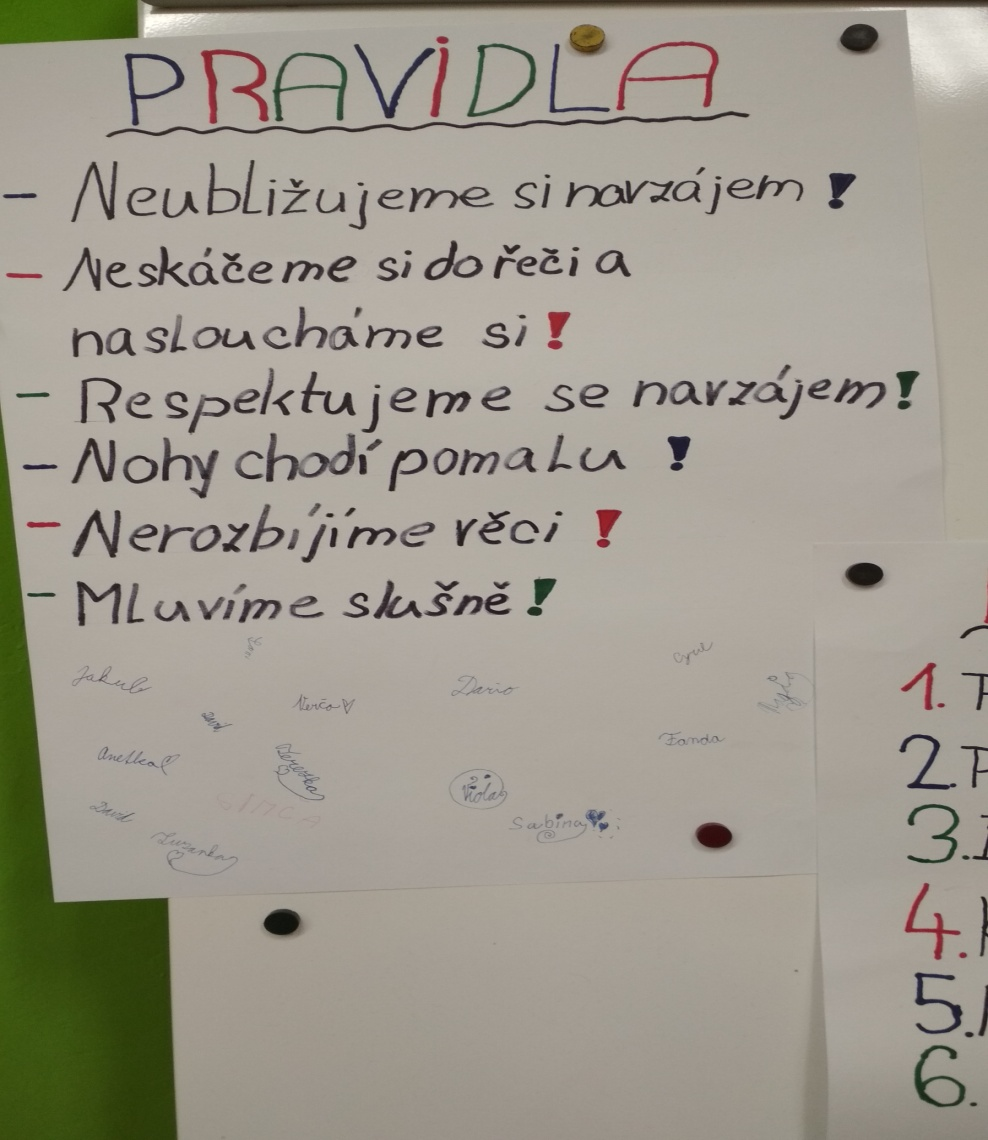 PRAVIDLA
- Neubližujeme si navzájem!
- Neskáčeme si do řeči a
nasloucháme si!
- Respektujeme se navzájem!
- Nohy chodí pomalu!
- Nerozbíjíme věci!
- Mluvíme slušně!
Jakub
Verča
Dario
Anetka
Terezka
Fanda
Viola
David
Sabina
Zuzanka
1.
2.
3.
4.
5.
6.